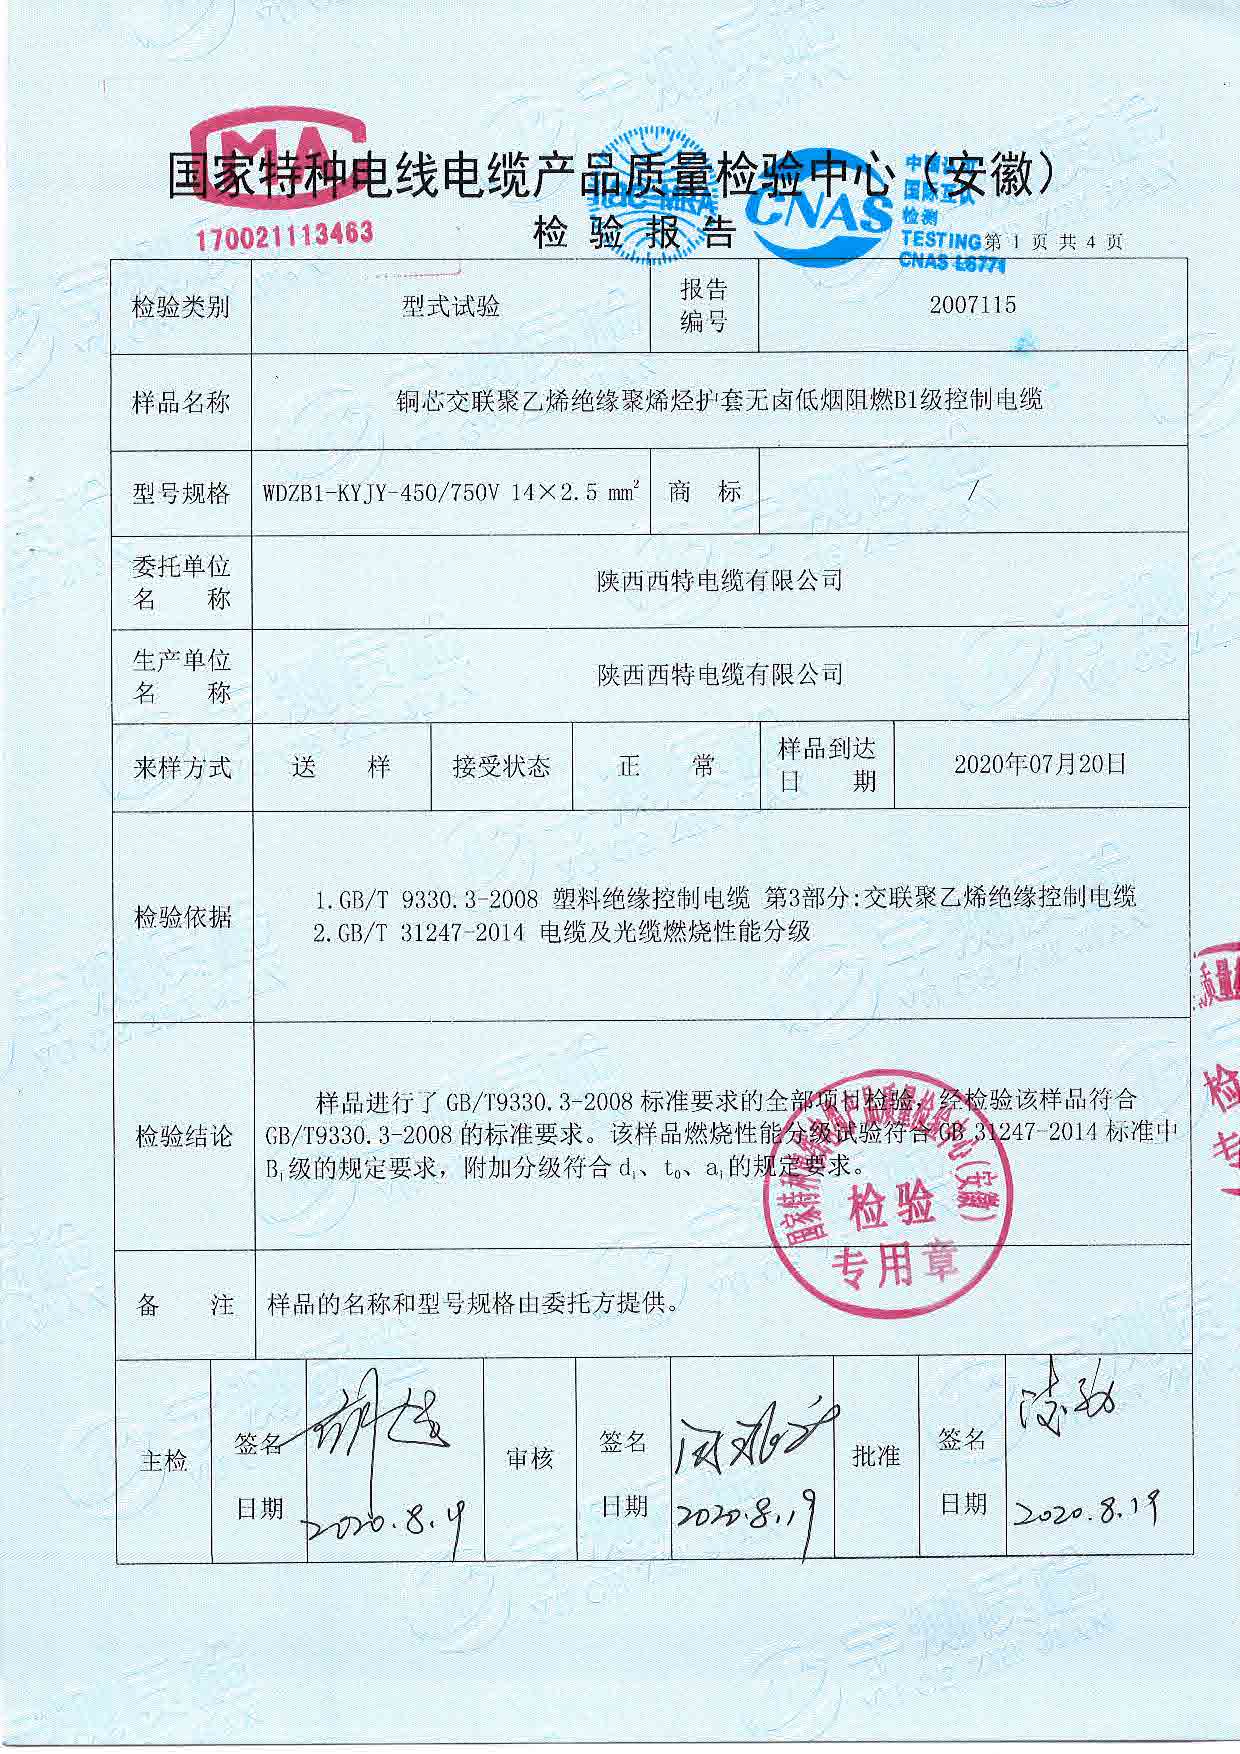 MA
国家特种电线电缆产品质量检验中心（安徽）
170021113463
检验报告
ilac-MRA
CNAS
中国认可
国际互认
检测
TESTING
CNAS L6771
第 1 页 共 4 页
检验类别 型式试验 报告编号 2007115
样品名称 铜芯交联聚乙烯绝缘聚烯烃护套无卤低烟阻燃B1级控制电缆
型号规格 WDZB1-KYJY-450/750V 14×2.5 mm² 商 标 /
委托单位名 称 陕西西特电缆有限公司
生产单位名 称 陕西西特电缆有限公司
来样方式 送 样 接受状态 正 常 样品到达日 期 2020年07月20日
检验依据
1.GB/T 9330.3-2008 塑料绝缘控制电缆 第3部分:交联聚乙烯绝缘控制电缆
2.GB/T 31247-2014 电缆及光缆燃烧性能分级
检验结论
样品进行了 GB/T9330.3-2008 标准要求的全部项目检验，经检验该样品符合
GB/T9330.3-2008 的标准要求。该样品燃烧性能分级试验符合 GB 31247-2014 标准中
B₁级的规定要求，附加分级符合 d₁、t₀、a₁的规定要求。
国家特种电线电缆产品质量检验中心(安徽)
检验
专用章
质量
检
专
备 注 样品的名称和型号规格由委托方提供。
主检 签名 审核 签名 批准 签名
日期 2020.8.19 日期 2020.8.19 日期 2020.8.19